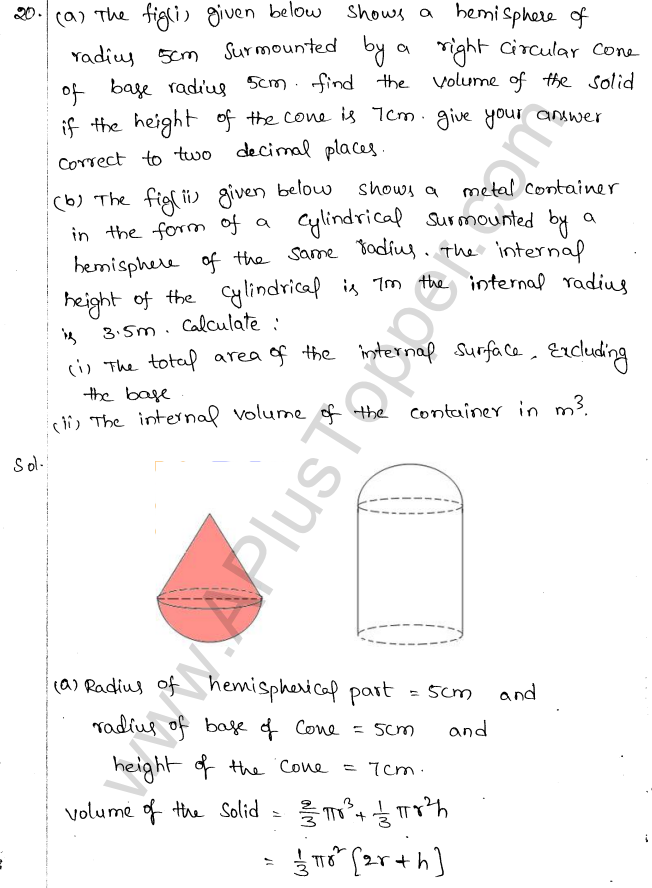 20. (a) The fig(i) given below shows a hemisphere of
radius 5cm surmounted by a right circular cone
of base radius 5cm. find the volume of the solid
if the height of the cone is 7cm. give your answer
correct to two decimal places.
(b) The fig(ii) given below shows a metal container
in the form of a cylindrical surmounted by a
hemisphere of the same radius. The internal
height of the cylindrical is 7m the internal radius
is 3.5m. Calculate :
(i) The total area of the internal surface, Excluding
the base
(ii) The internal volume of the container in m³.
Sol.
(a) Radius of hemispherical part = 5cm and
radius of base of cone = 5cm and
height of the cone = 7cm.
volume of the solid = 2/3 πr³ + 1/3 πr²h
= 1/3 πr² [2r + h]
www.APlusTopper.com